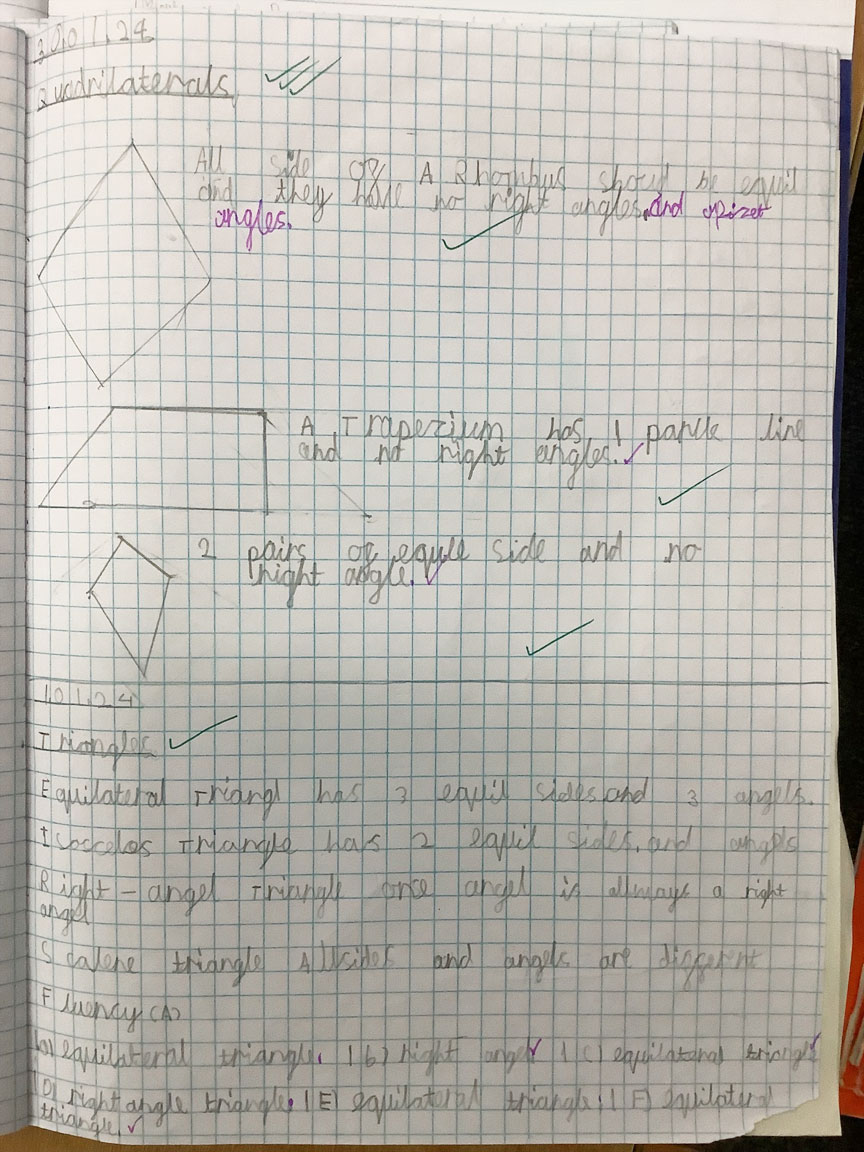 30.01.24
Quadrilaterals
All side of A Rhombus shoud be equil
and they have no right angles. and opizet
angles.
A Trapezium has 1 parlle line
and no right angles.
2 pairs of equle side and no
right angle.
1.01.24
Triangles
Equilateral Triangl has 3 equil sides and 3 angels.
Isosceles Triangle has 2 equil sides. and angels
Right-angel Triangle once angel is allways a right
angel
Scalene triangle All sides and angels are different
Fluency (A)
1a) equilateral triangle. 1b) right angel 1c) equilateral triangle
1D) right angle triangle. 1E) equilateral triangle. 1F) equilateral
triangle.